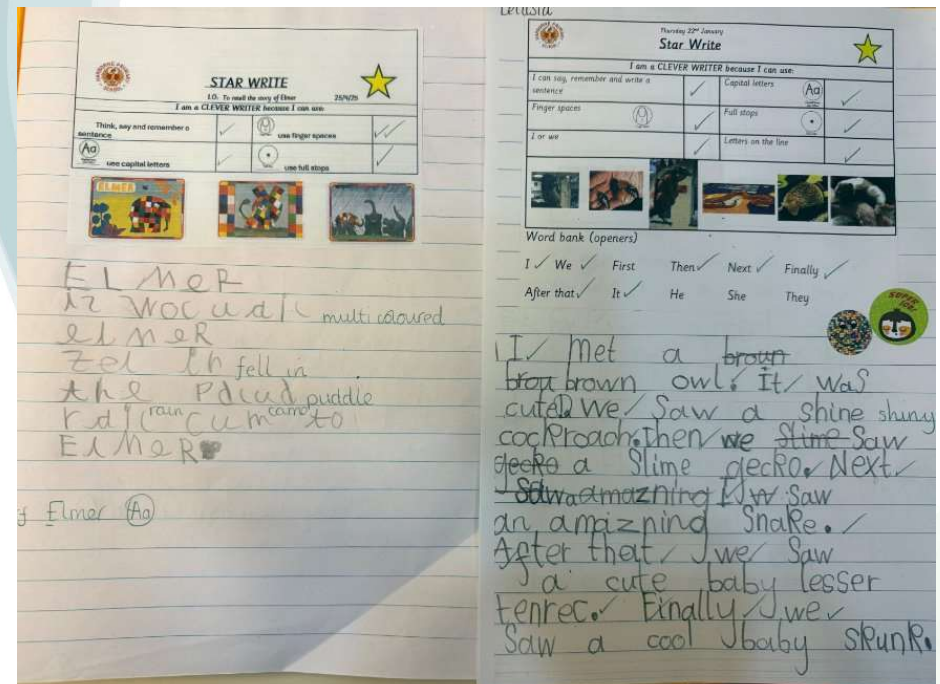 STAR WRITE
I.O. To retell the story of Elmer
I am a CLEVER WRITER because I can use:
Think, say and remember a sentence
use finger spaces
Aa
use capital letters
use full stops
ELMER
ELMER
multi coloured
elmeR
fell in
the puddle
rain cum came to
ELMeR
Elmer Aa
Thursday 22nd January
Star Write
I am a CLEVER WRITER because I can use:
I can say, remember and write a sentence
Capital letters
Aa
Finger spaces
Full stops
I or we
Letters on the line
Word bank (openers)
I We First Then Next Finally
After that It He She They
I met a broun
brou brown owl. It was
cute. We Saw a Shine shiny
cockroach. Then we Slime Saw
gecko a Slime gecko. Next
I w Saw
an amaizning Snake.
After that we Saw
a cute baby lesser
tenrec. Finally we
Saw a cool baby skunk.